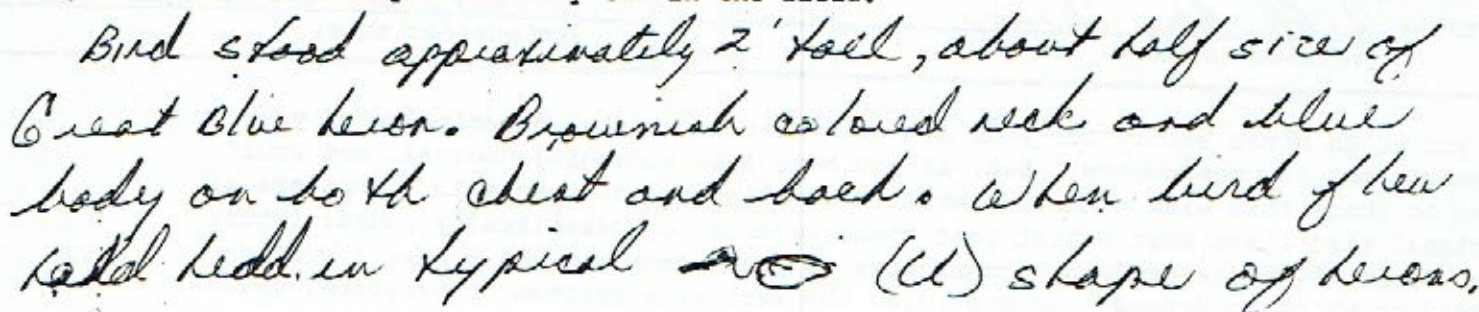 in the field.
Bird stood approximately 2' tall, about half size of
Great Blue heron. Brownish colored neck and blue
body on both chest and back. When bird flew
held head in typical (U) shape of herons.